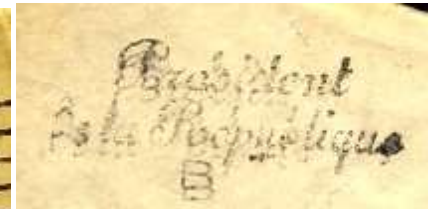 Président
de la République
B